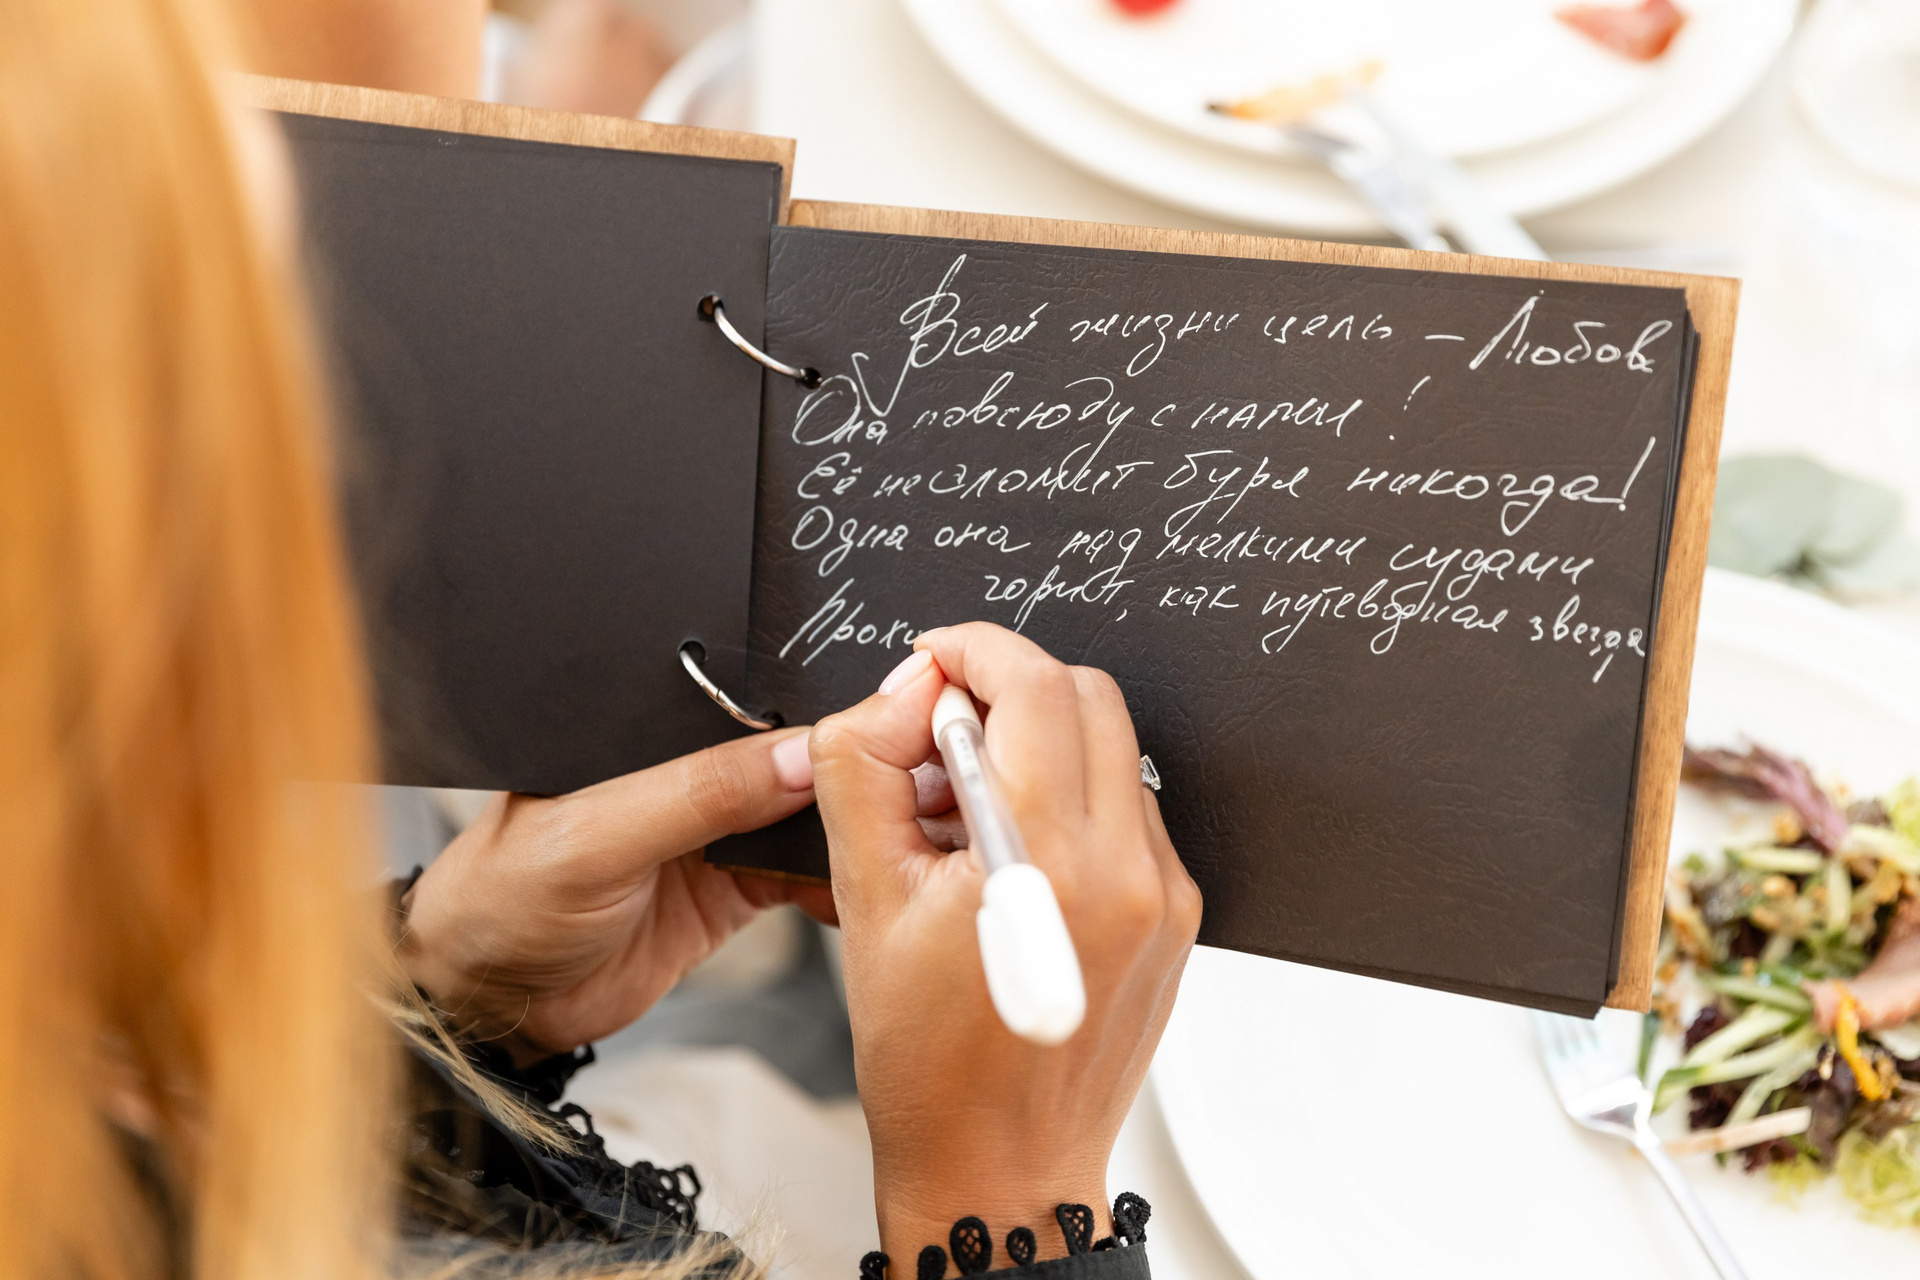 Всей жизни цель – Любовь
Она повсюду с нами!
Её не сломит буря никогда!
Одна она над мелкими судами
горит, как путеводная звезда